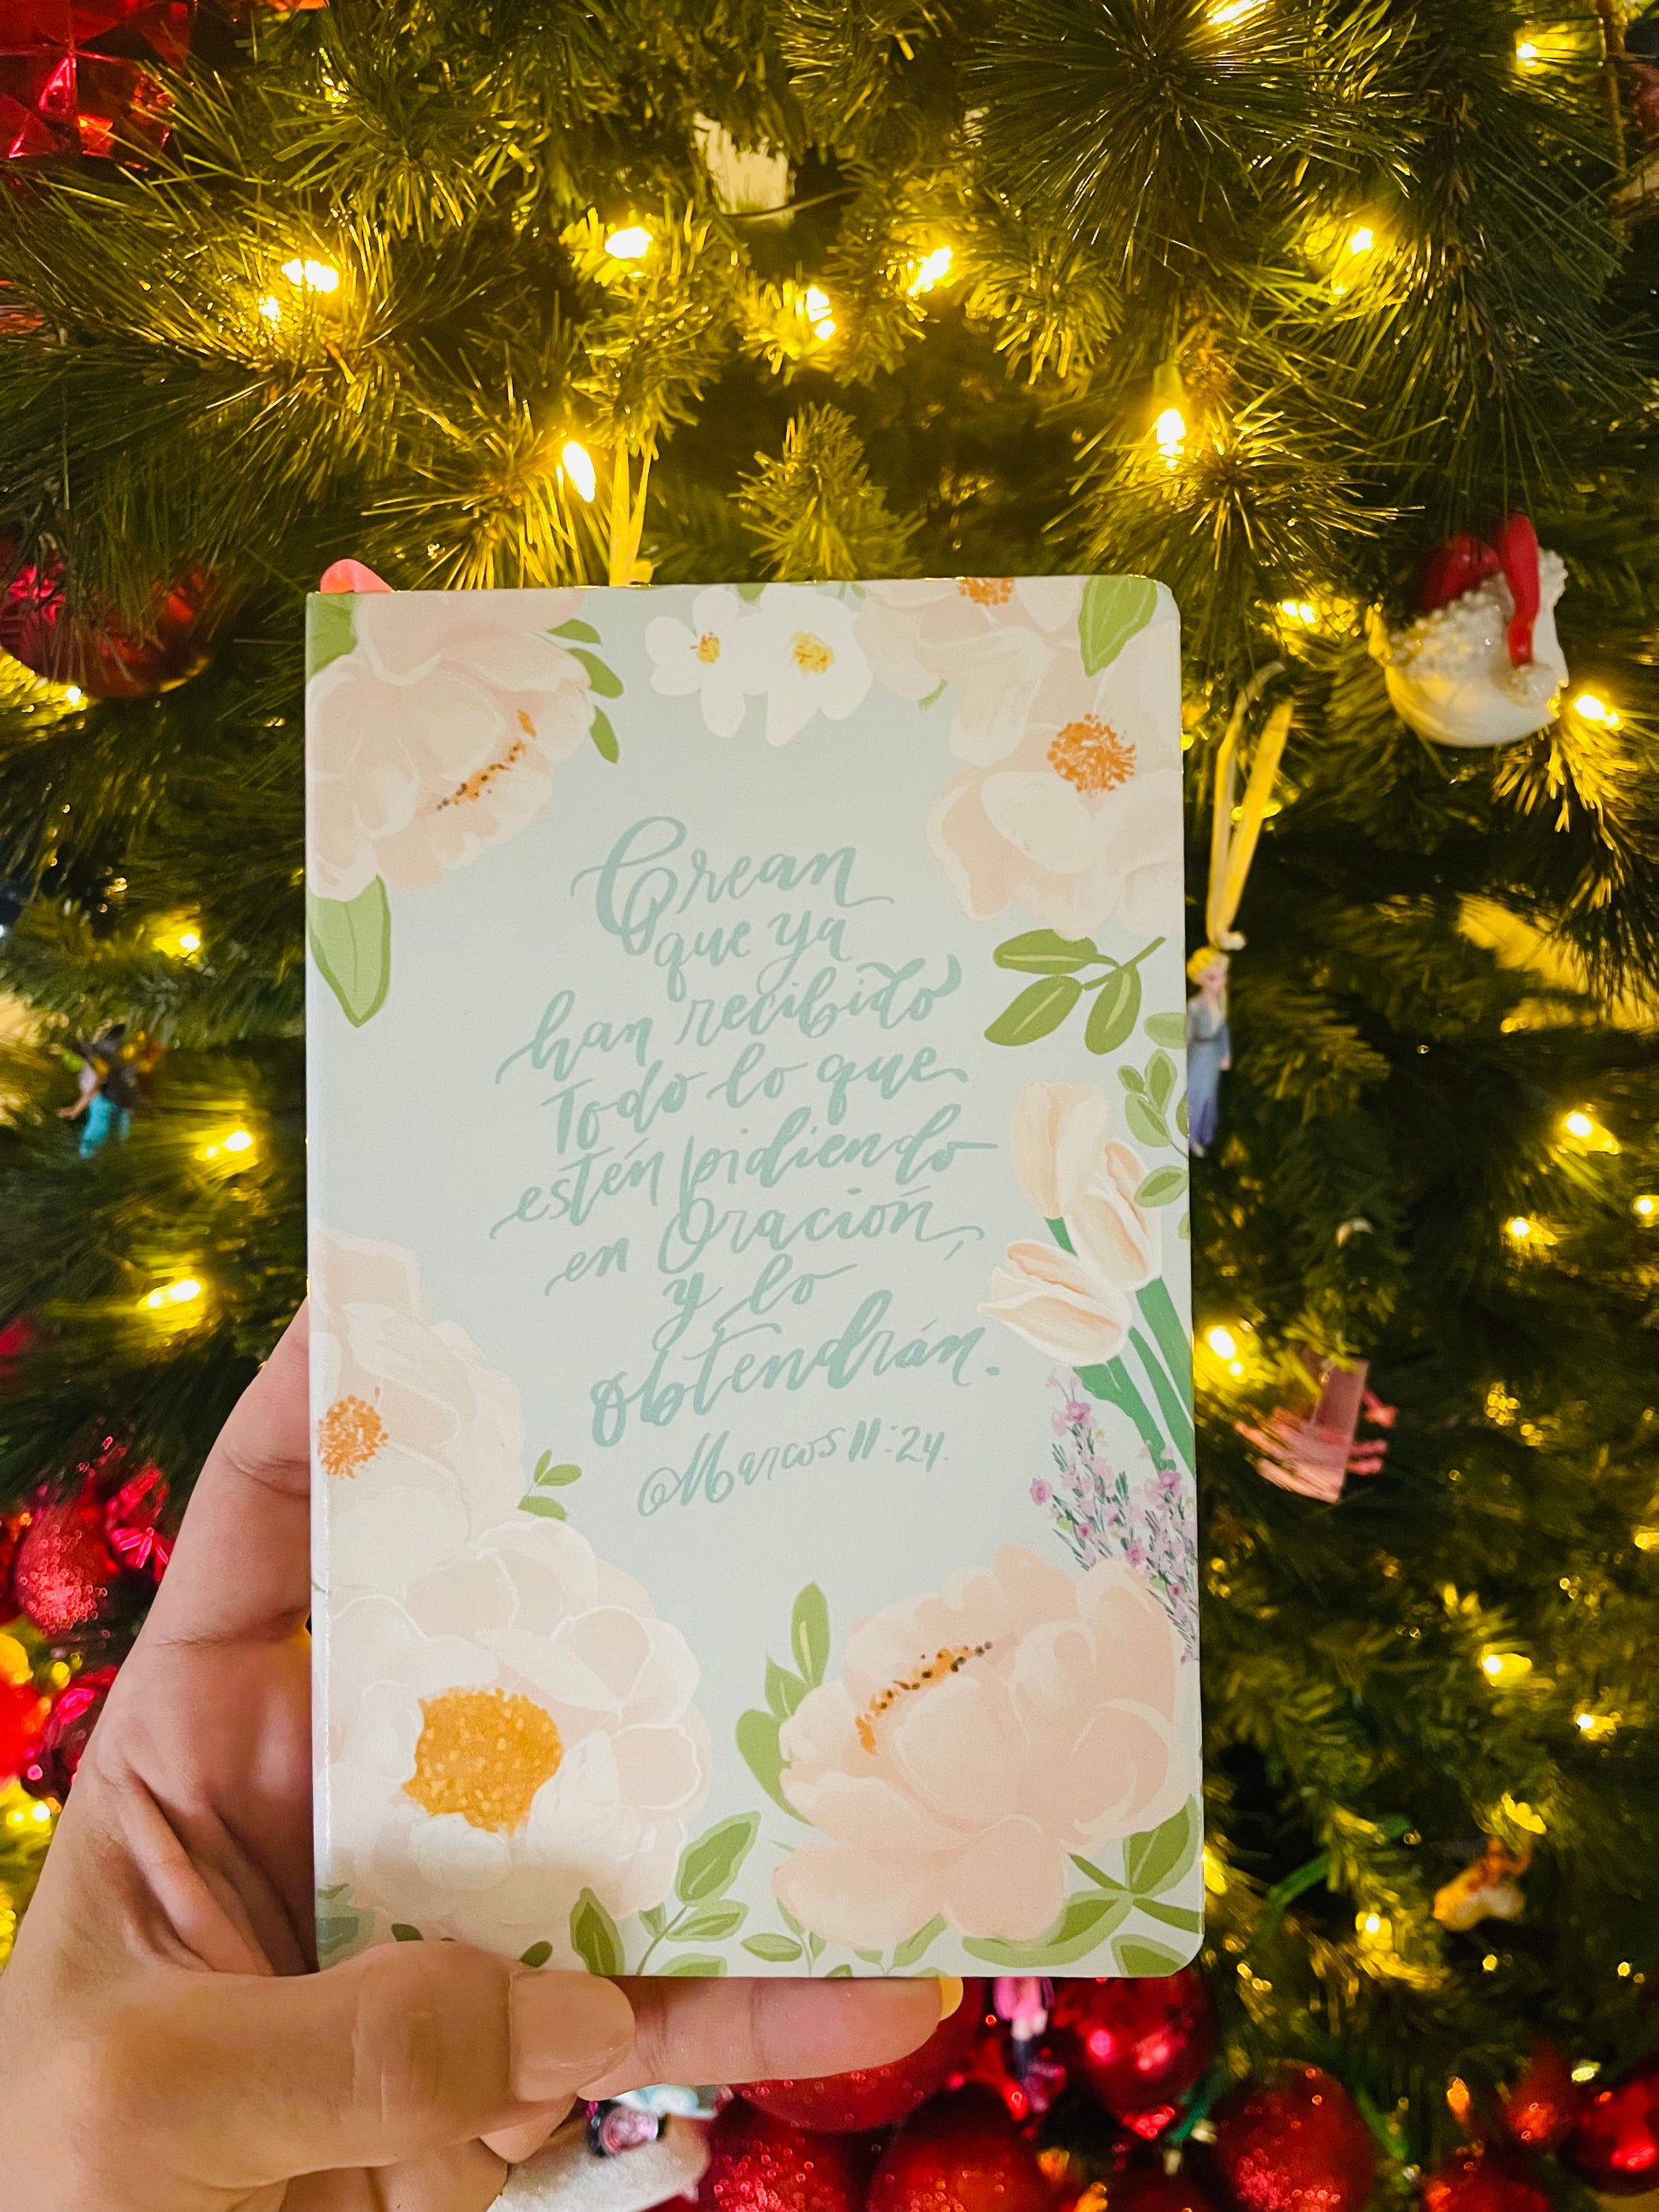 Crean
que ya
han recibido
Todo lo que
estén pidiendo
en Oración,
y lo
obtendrán.
Marcos 11:24.